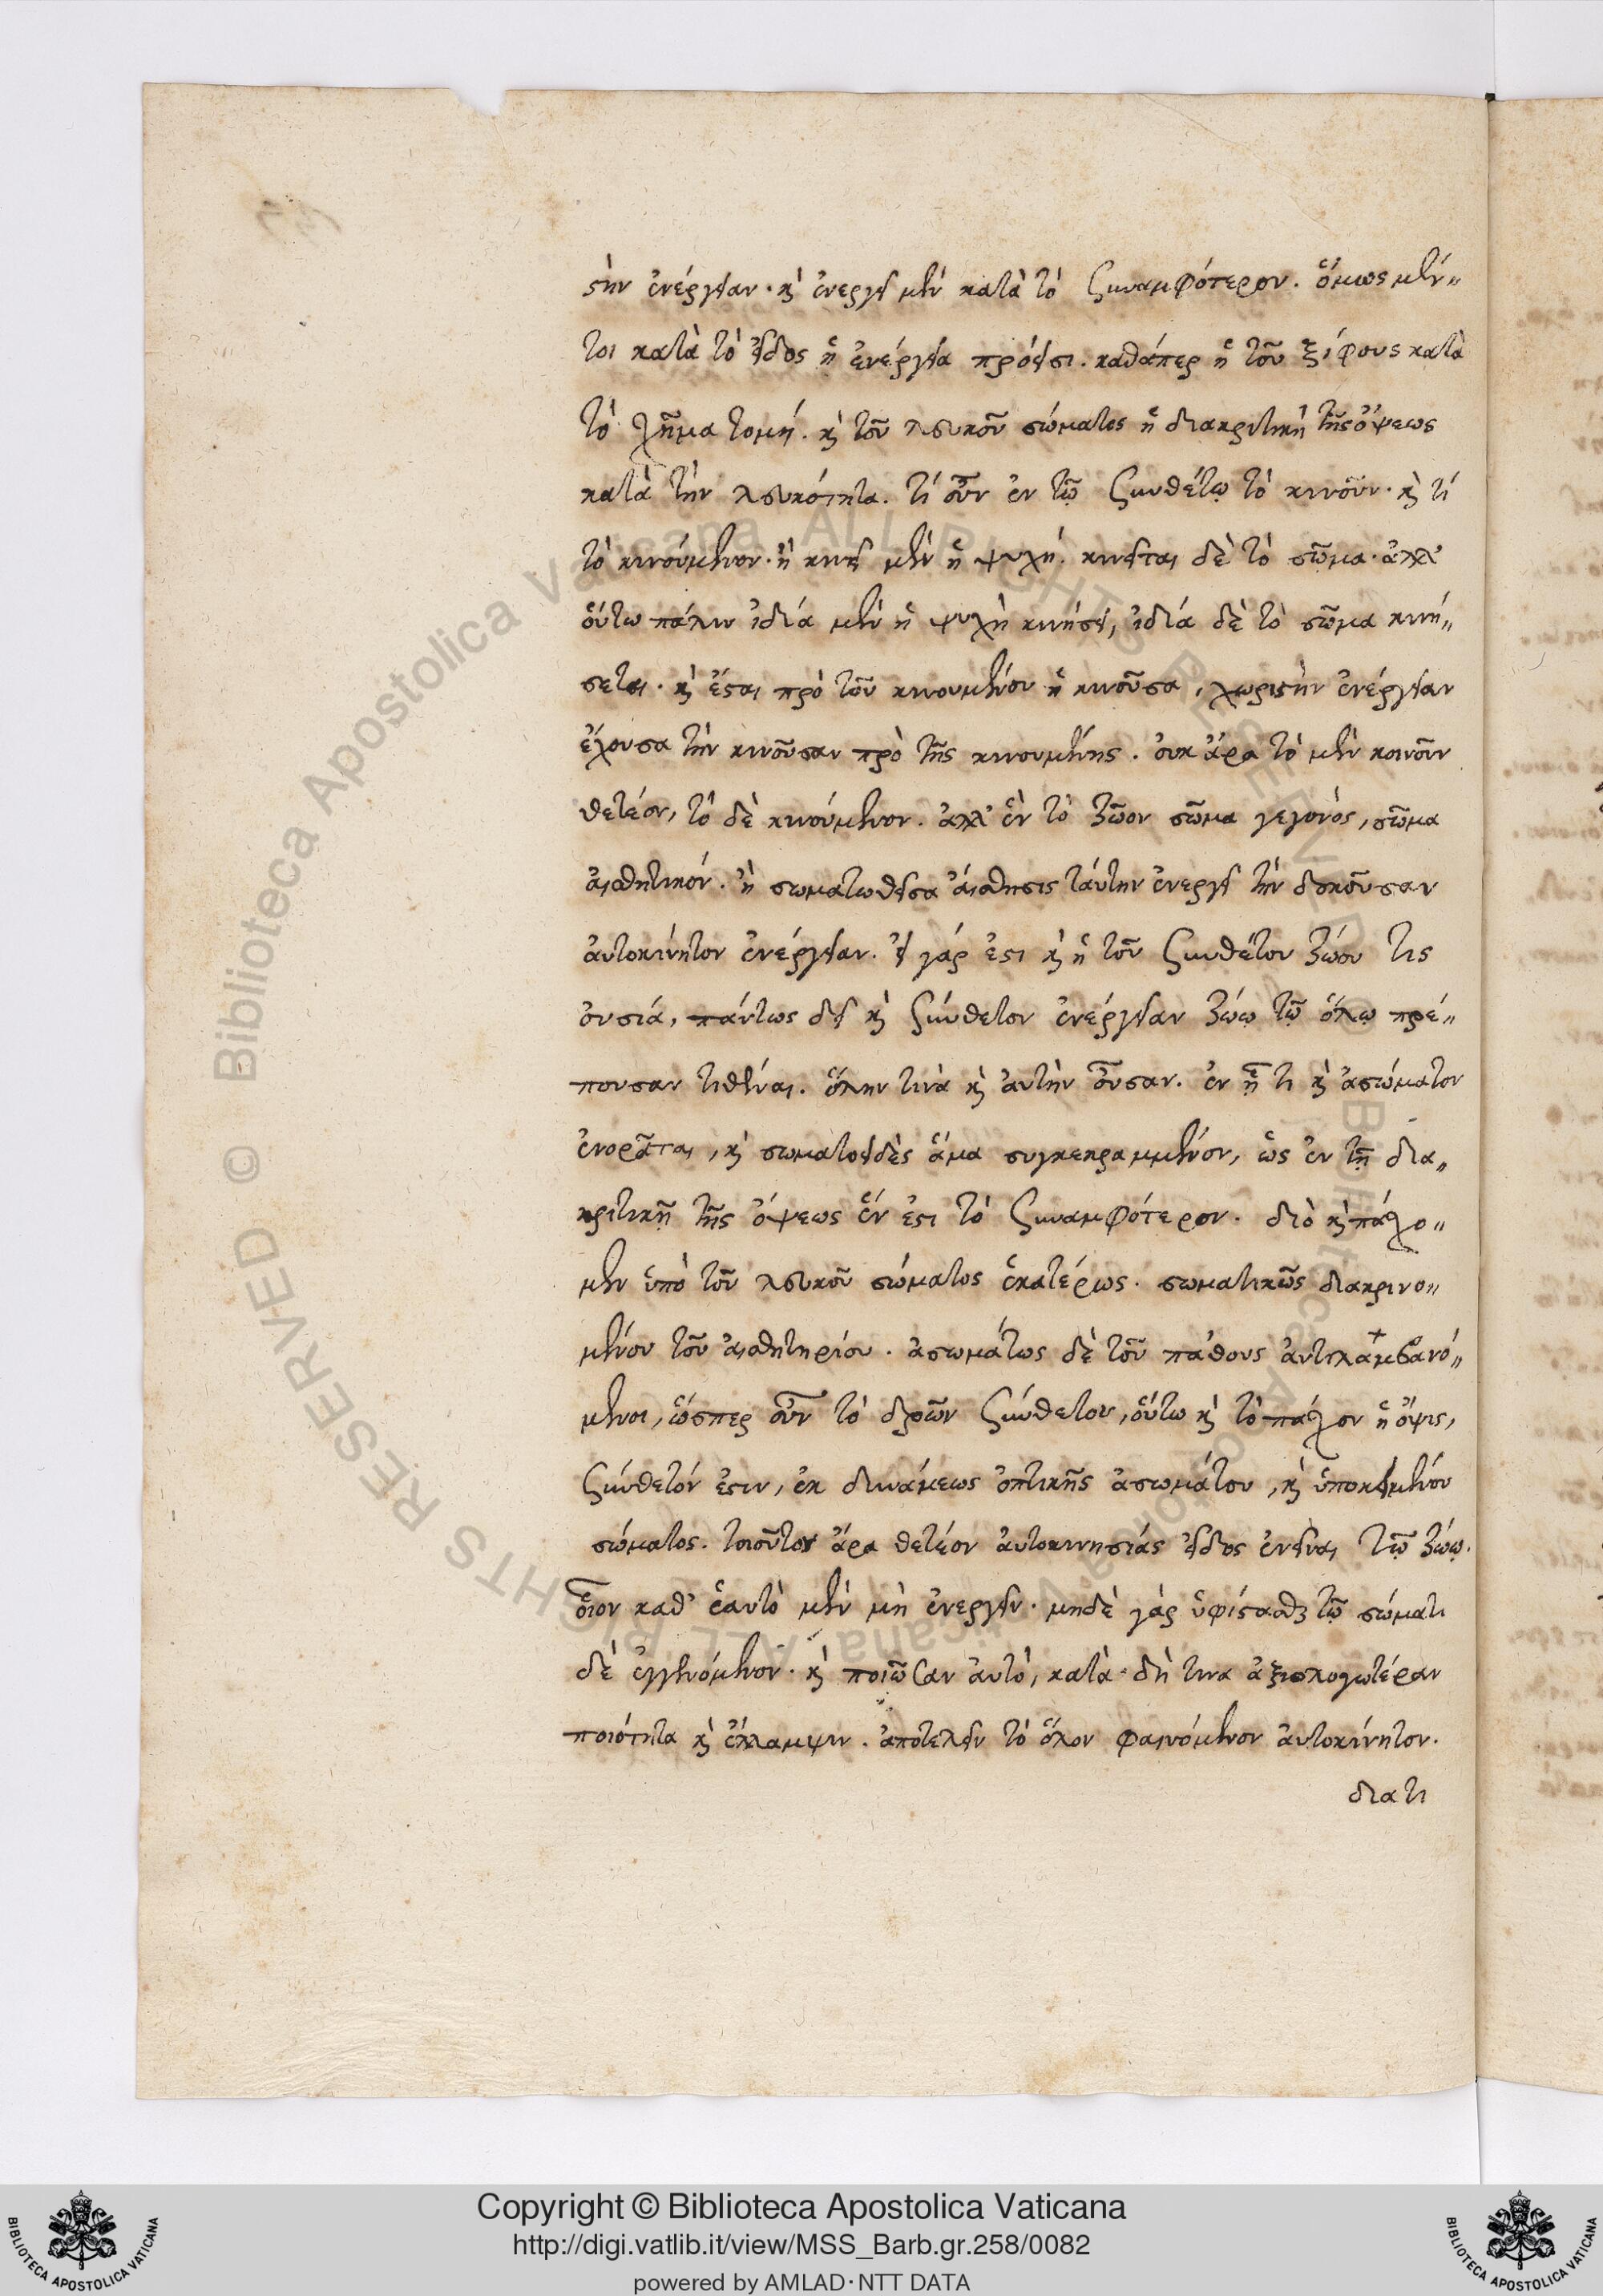 στὴν ἐνέργειαν· καὶ ἐνεργεῖ μὲν κατὰ τὸ ξυναμφότερον. ὅμως μὲν〃
τοι κατὰ τὸ εἶδος ἡ ἐνέργεια πρόεισι. καθάπερ ἡ τοῦ ξίφους κατὰ
τὸ σχῆμα τομή. καὶ τοῦ λευκοῦ σώματος ἡ διακριτικὴ τῆς ὄψεως
κατὰ τὴν λευκότητα. τί οὖν ἐν τῷ ξυνθέτῳ τὸ κινοῦν· καὶ τί
τὸ κινούμενον· ἢ κινεῖ μὲν ἡ ψυχή. κινεῖται δὲ τὸ σῶμα· ἀλλ'
οὕτω πάλιν ἰδίᾳ μὲν ἡ ψυχὴ κινήσει, ἰδίᾳ δὲ τὸ σῶμα κινή〃
σεται· καὶ ἔσται πρὸ τοῦ κινουμένου ἡ κινοῦσα, χωριστὴν ἐνέργειαν
ἔχουσα τὴν κινοῦσαν πρὸ τῆς κινουμένης. οὐκ ἄρα τὸ μὲν κοινοῦν
θετέον, τὸ δὲ κινούμενον. ἀλλ' ἓν τὸ ζῶον σῶμα γεγονός, σῶμα
αἰσθητικόν. ἢ σωματωθεῖσα αἴσθησις ταύτην ἐνεργεῖ τὴν δοκοῦσαν
αὐτοκίνητον ἐνέργειαν. εἰ γάρ ἐστι καὶ ἡ τοῦ ξυνθέτου ζώου τις
οὐσία, πάντως δεῖ καὶ ξύνθετον ἐνέργειαν ζώῳ τῷ ὅλῳ πρέ〃
πουσαν τιθέναι. ὅλην τινὰ καὶ αὐτὴν οὖσαν. ἐν ᾗ τι καὶ ἀσώματον
ἐνορᾶται, καὶ σωματοειδὲς ἅμα συγκεκραμμένον, ὡς ἐν τῇ δια〃
κριτικῇ τῆς ὄψεως ἕν ἐστι τὸ ξυναμφότερον. διὸ καὶ πάσχο〃
μεν ὑπὸ τοῦ λευκοῦ σώματος ἑκατέρως. σωματικῶς διακρινο〃
μένου τοῦ αἰσθητηρίου. ἀσωμάτως δὲ τοῦ πάθους ἀντιλαμβανό〃
μενοι, ὥσπερ οὖν τὸ δρῶν ξύνθετον, οὕτω καὶ τὸ πάσχον ἡ ὄψις,
ξύνθετόν ἐστιν, ἐκ δυνάμεως ὀπτικῆς ἀσωμάτου, καὶ ὑποκειμένου
σώματος. τοιοῦτον ἄρα θετέον αὐτοκινησίας εἶδος ἐνεῖναι τῷ ζώῳ.
οἷον καθ' ἑαυτὸ μὲν μὴ ἐνεργεῖν. μηδὲ γὰρ ὑφίστασθαι τῷ σώματι
δὲ ἐγγενόμενον. καὶ ποιῶσαν αὐτό, κατὰ δή τινα ἀξιολογωτέραν
ποιότητα καὶ ἔλλαμψιν. ἀποτελεῖν τὸ ὅλον φαινόμενον αὐτοκίνητον.
διατι
Copyright © Biblioteca Apostolica Vaticana
http://digi.vatlib.it/view/MSS_Barb.gr.258/0082
powered by AMLAD·NTT DATA